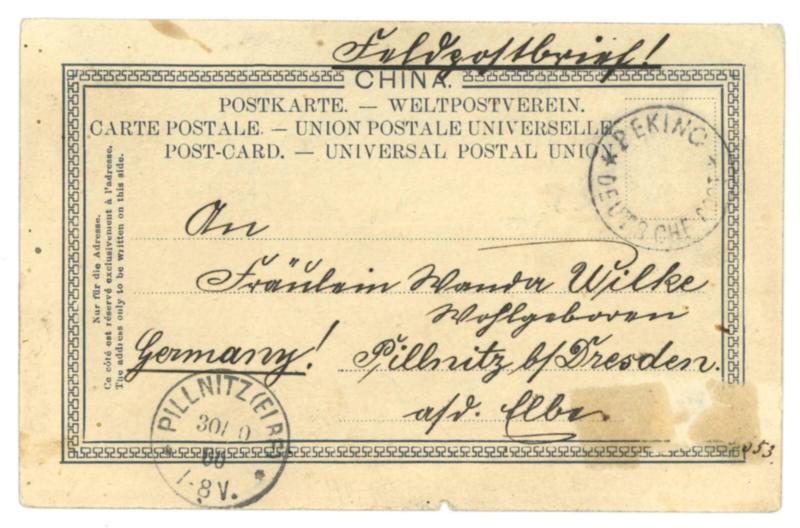 Feldpostbrief!
CHINA.
POSTKARTE. — WELTPOSTVEREIN.
CARTE POSTALE. — UNION POSTALE UNIVERSELLE
POST-CARD. — UNIVERSAL POSTAL UNION
* PEKING *
DEUTSCHE POST
Nur für die Adresse.
Ce côté est réservé exclusivement à l'adresse.
The address only to be written on this side.
An
Fräulein Wanda Wilke
Wohlgeboren
Germany! Pillnitz b/Dresden.
a/d. Elbe.
PILLNITZ (ELBE)
00
7-8 V.